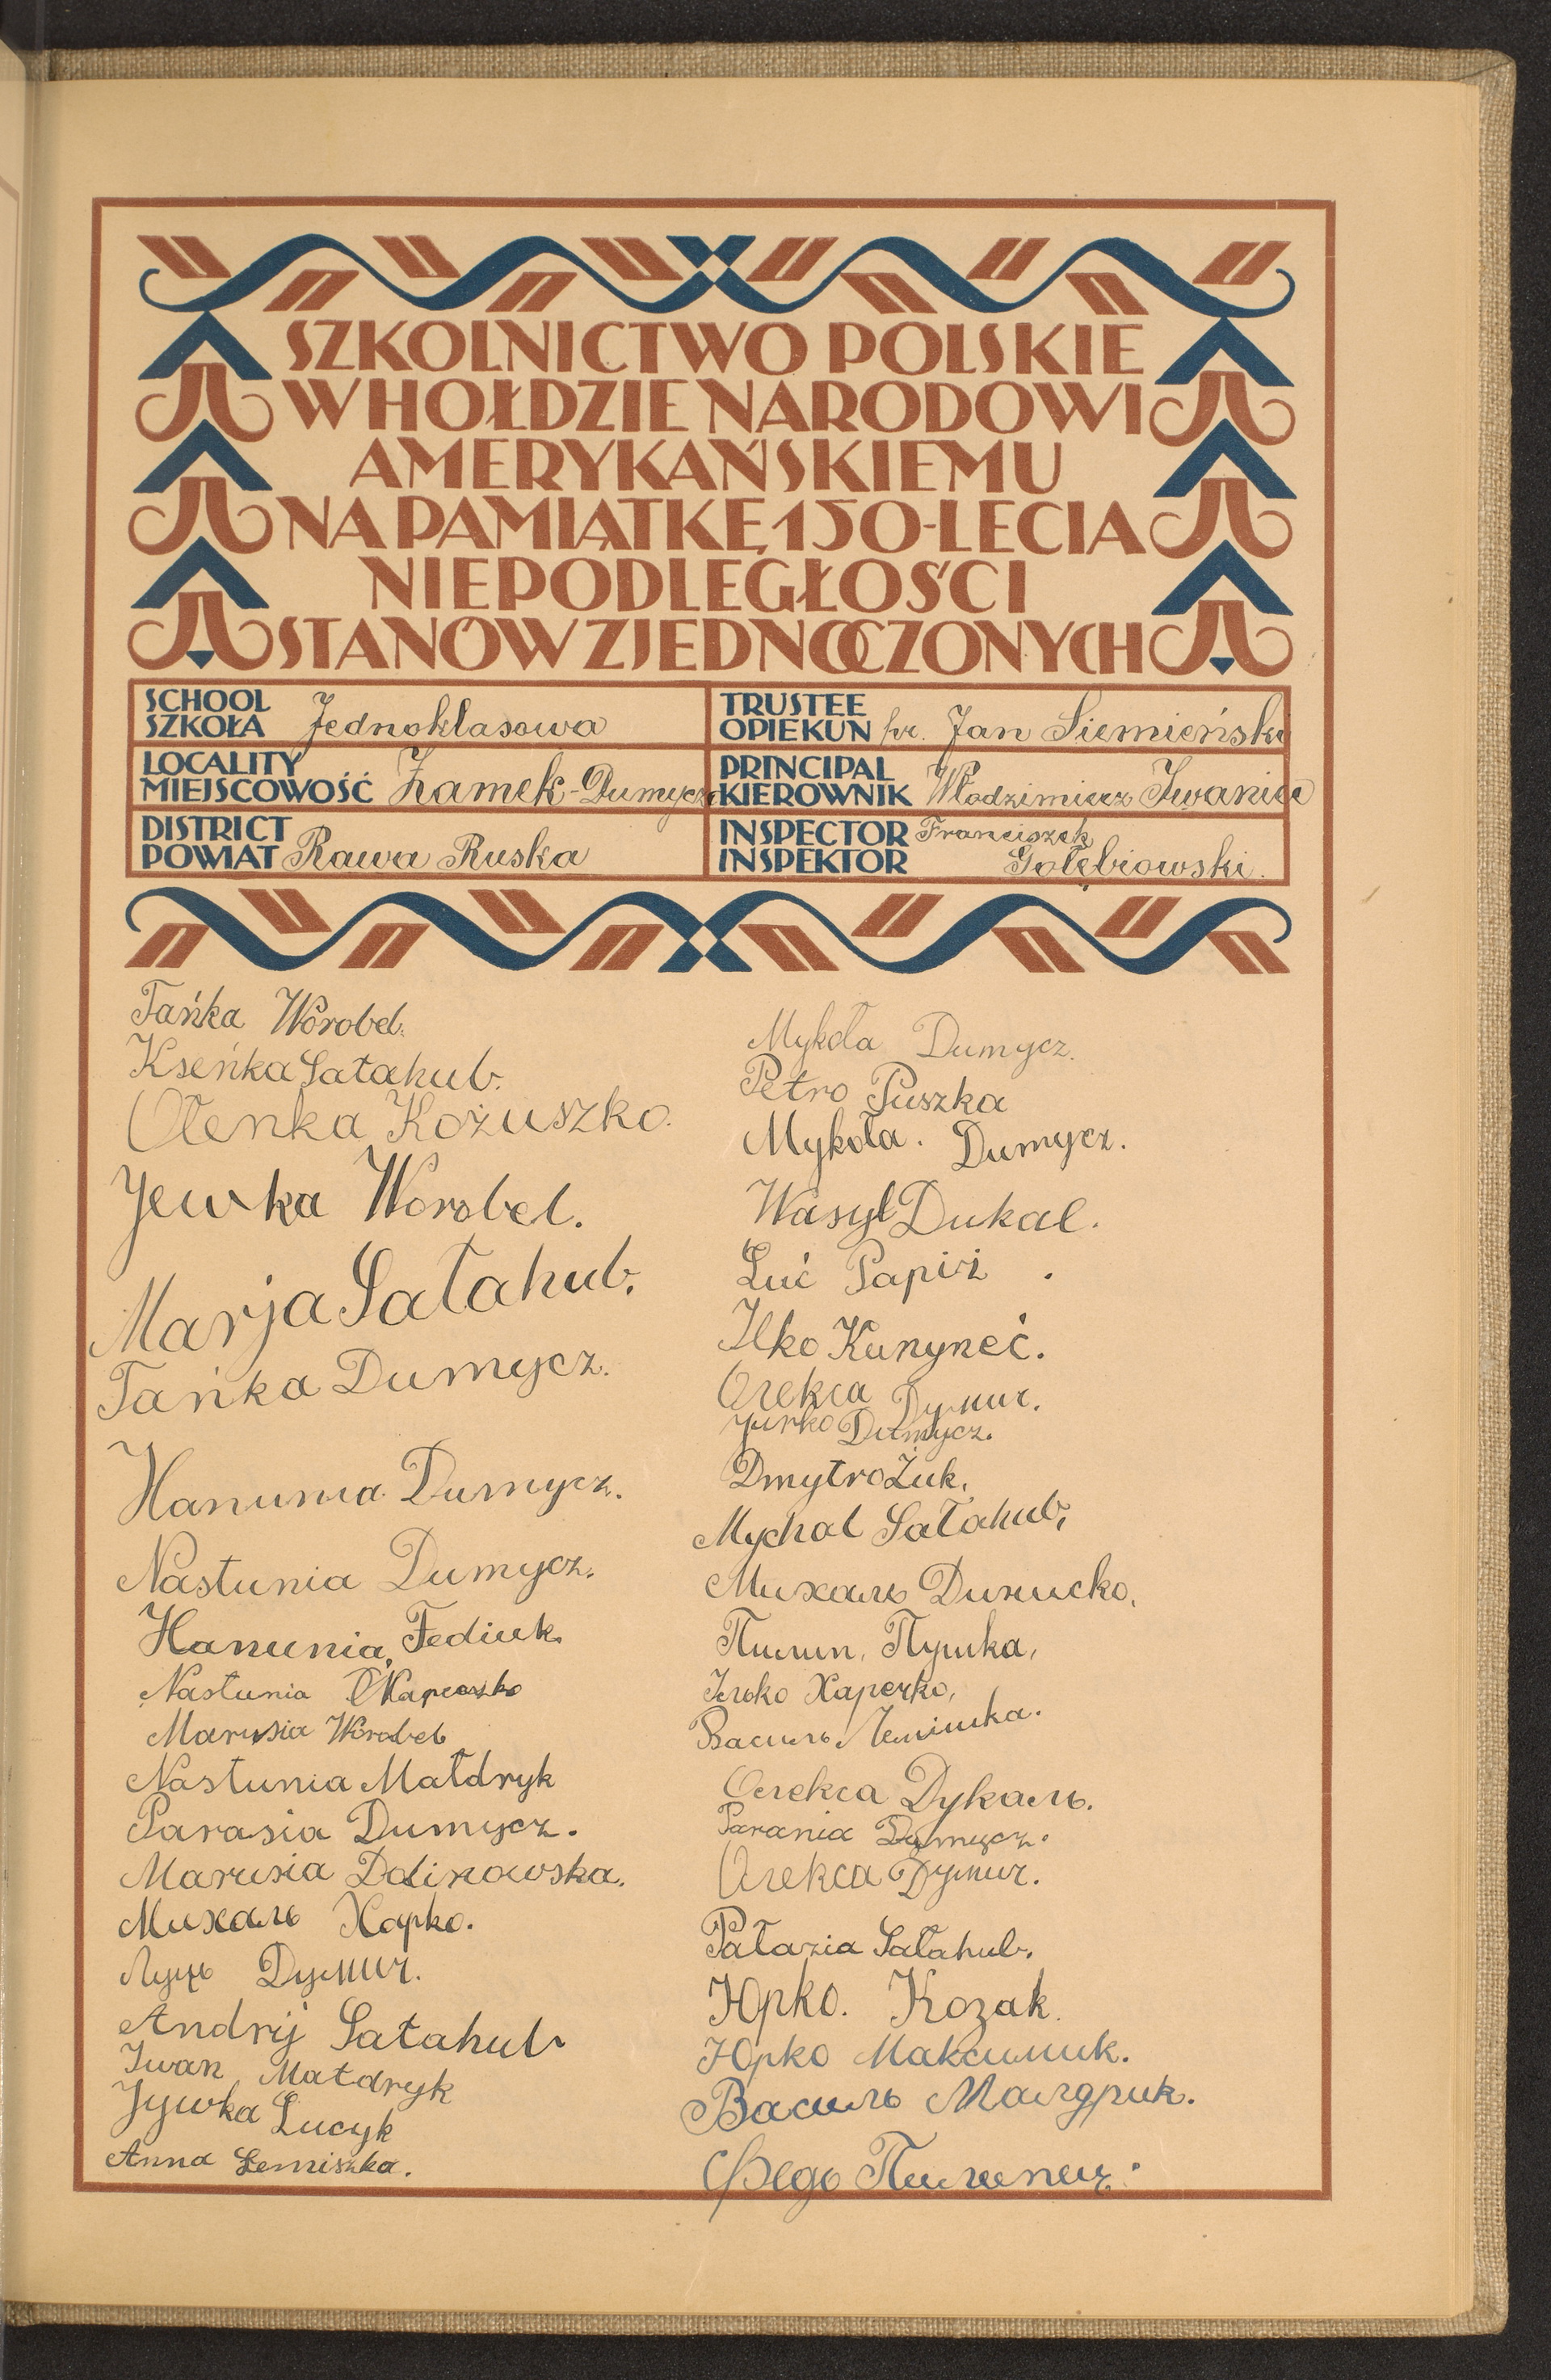 SZKOLNICTWO POLSKIE
W HOŁDZIE NARODOWI
AMERYKAŃSKIEMU
NA PAMIĄTKĘ 150-LECIA
NIEPODLEGŁOŚCI
STANÓW ZJEDNOCZONYCH
SCHOOL
SZKOŁA Jednoklasowa
TRUSTEE
OPIEKUN hr. Jan Siemieński
LOCALITY
MIEJSCOWOŚĆ Zamek-Dumycze
PRINCIPAL
KIEROWNIK Włodzimierz Iwaniec
DISTRICT
POWIAT Rawa Ruska
INSPECTOR Franciszek
INSPEKTOR Gołębiowski.
Tańka Worobel.
Kseńka Sałahub.
Ołenka Kożuszko.
Jewka Worobel.
Marja Sałahub.
Tańka Dumycz.
Hanunia Dumycz.
Nastunia Dumycz.
Hanunia Fediuk.
Nastunia
Marusia Worobel
Nastunia Małdryk
Parasia Dumycz.
Marusia Dolinowska.
Михаль Харко.
Луць Думич.
Andrij Sałahub
Iwan Małdryk
Jywka Łucyk
Anna Łemiszka.
Mykoła Dumycz.
Petro Puszka
Mykoła. Dumycz.
Wasyl Dukal.
Łuć Papiż.
Ilko Kunyneć.
Олекса Думич.
Jurko Dumycz.
Dmytro Żuk.
Mychal Sałahub.
Михаль Диниско.
Пилип, Пушка,
Ілько Харечко,
Василь Лемішка.
Олекса Дукаль.
Parania Dumycz.
Олекса Думич.
Pałazia Sałahub.
Юрко. Kozak.
Юрко Максимик.
Василь Малдрик.
Федь